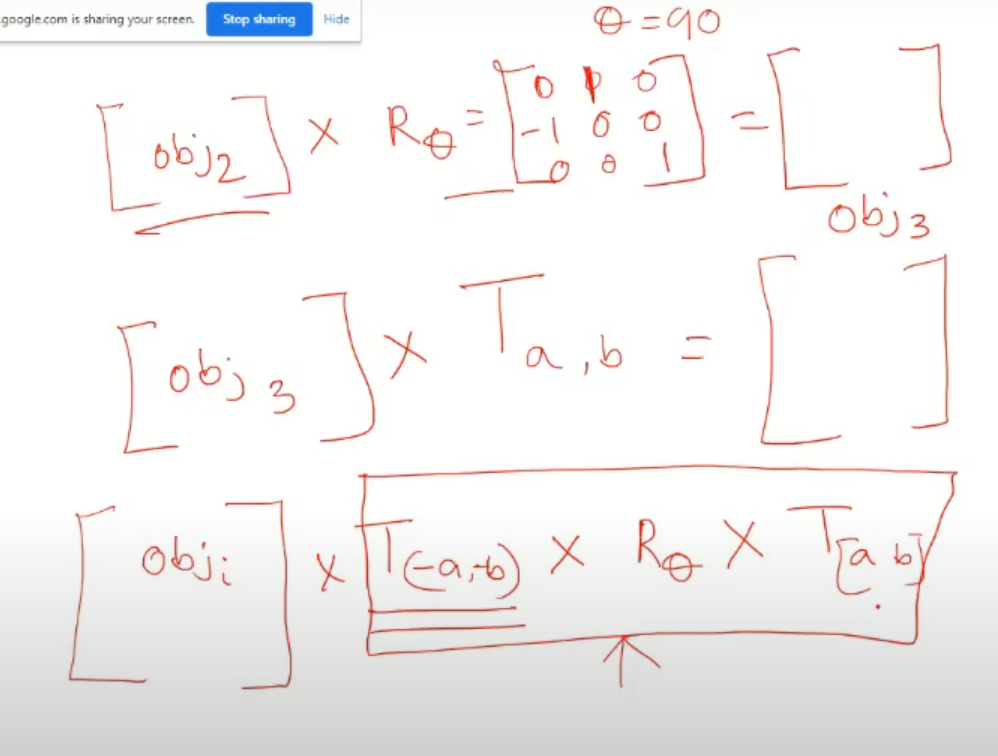 .google.com is sharing your screen. Stop sharing Hide
θ = 90
[obj2] × Rθ = [0 1 0
-1 0 0
0 0 1] = [ ]
obj3
[obj 3] × Ta,b = [ ]
[obji] × T(-a,-b) × Rθ × T[a b]